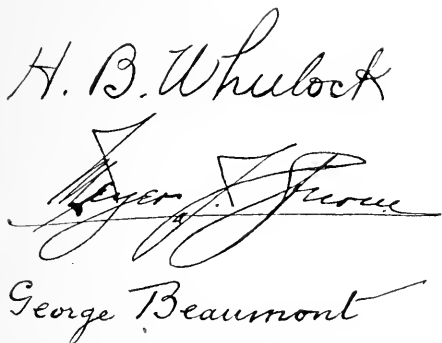 H. B. Wheelock
Meyer J. Sturm
George Beaumont